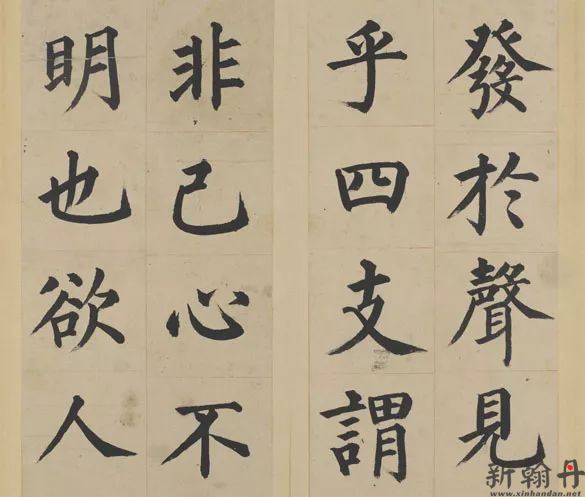 發於聲見
乎四支謂
非己心不
明也欲人
新翰丹
www.xinhandan.net